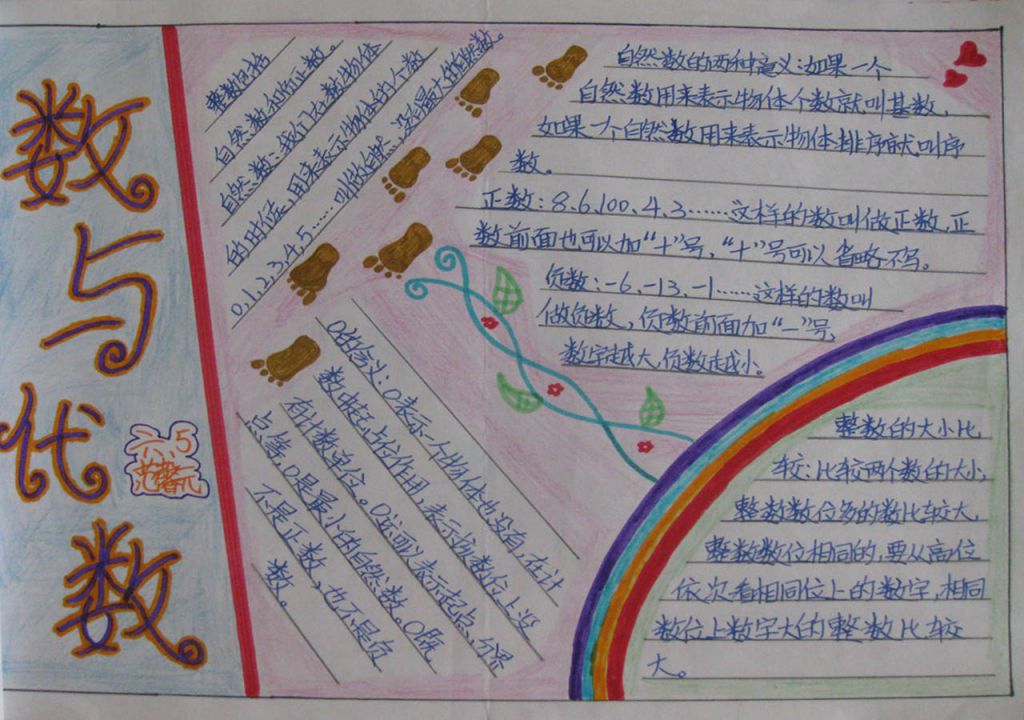 数与代数
六、5
整数包括
自然数和所正数。
自然数：我们在数物体
的时候，用来表示物体的个数
0,1,2,3,4,5……叫做自然，没有最大的自然数。
自然数的两种意义：如果一个
自然数用来表示物体个数就叫基数，
如果一个自然数用来表示物体排序就叫序
数。
正数：8、6、100、4、3……这样的数叫做正数，正
数前面也可以加“+”号，“+”号可以省略不写。
负数：-6、-13、-1……这样的数叫
做负数，负数前面加“-”号，
数字越大，负数越小。
0的含义：0表示一个物体也没有，在计
数中起占位作用，表示该数位上没
有计数单位。0还可以表示起点、分界
点等，0是最小的自然数。0既
不是正数，也不是负
数。
整数的大小比
较：比较两个数的大小，
整数数位多的数比较大，
整数数位相同的，要从高位
依次看相同位上的数字，相同
数位上数字大的整数比较
大。